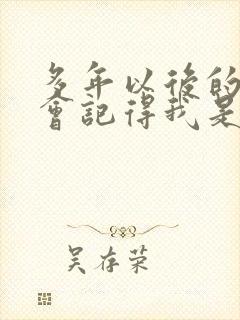 多年以後的
會記得我是
吴存荣